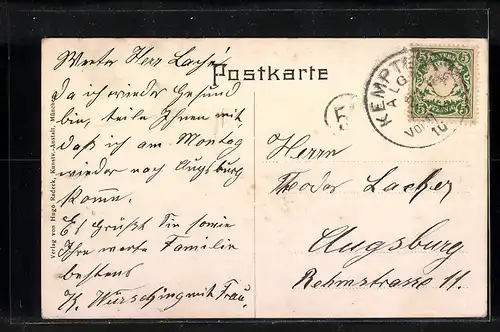 Werter Herr Lacher!
Postkarte
Da ich wieder Gesund
bin, teile Ihnen mit,
daß ich am Montag
wieder nach Augsburg
komme.
Es grüßt Sie sowie
Ihre werte Familie
bestens
Würsching mit Frau.
Verlag von Hugo Radeck, Kunstv.-Anstalt, München
KEMPTE
ALG
Vor
10
5
5
Herrn
Theodor Lacher
Augsburg
Rehmstrasse 11.